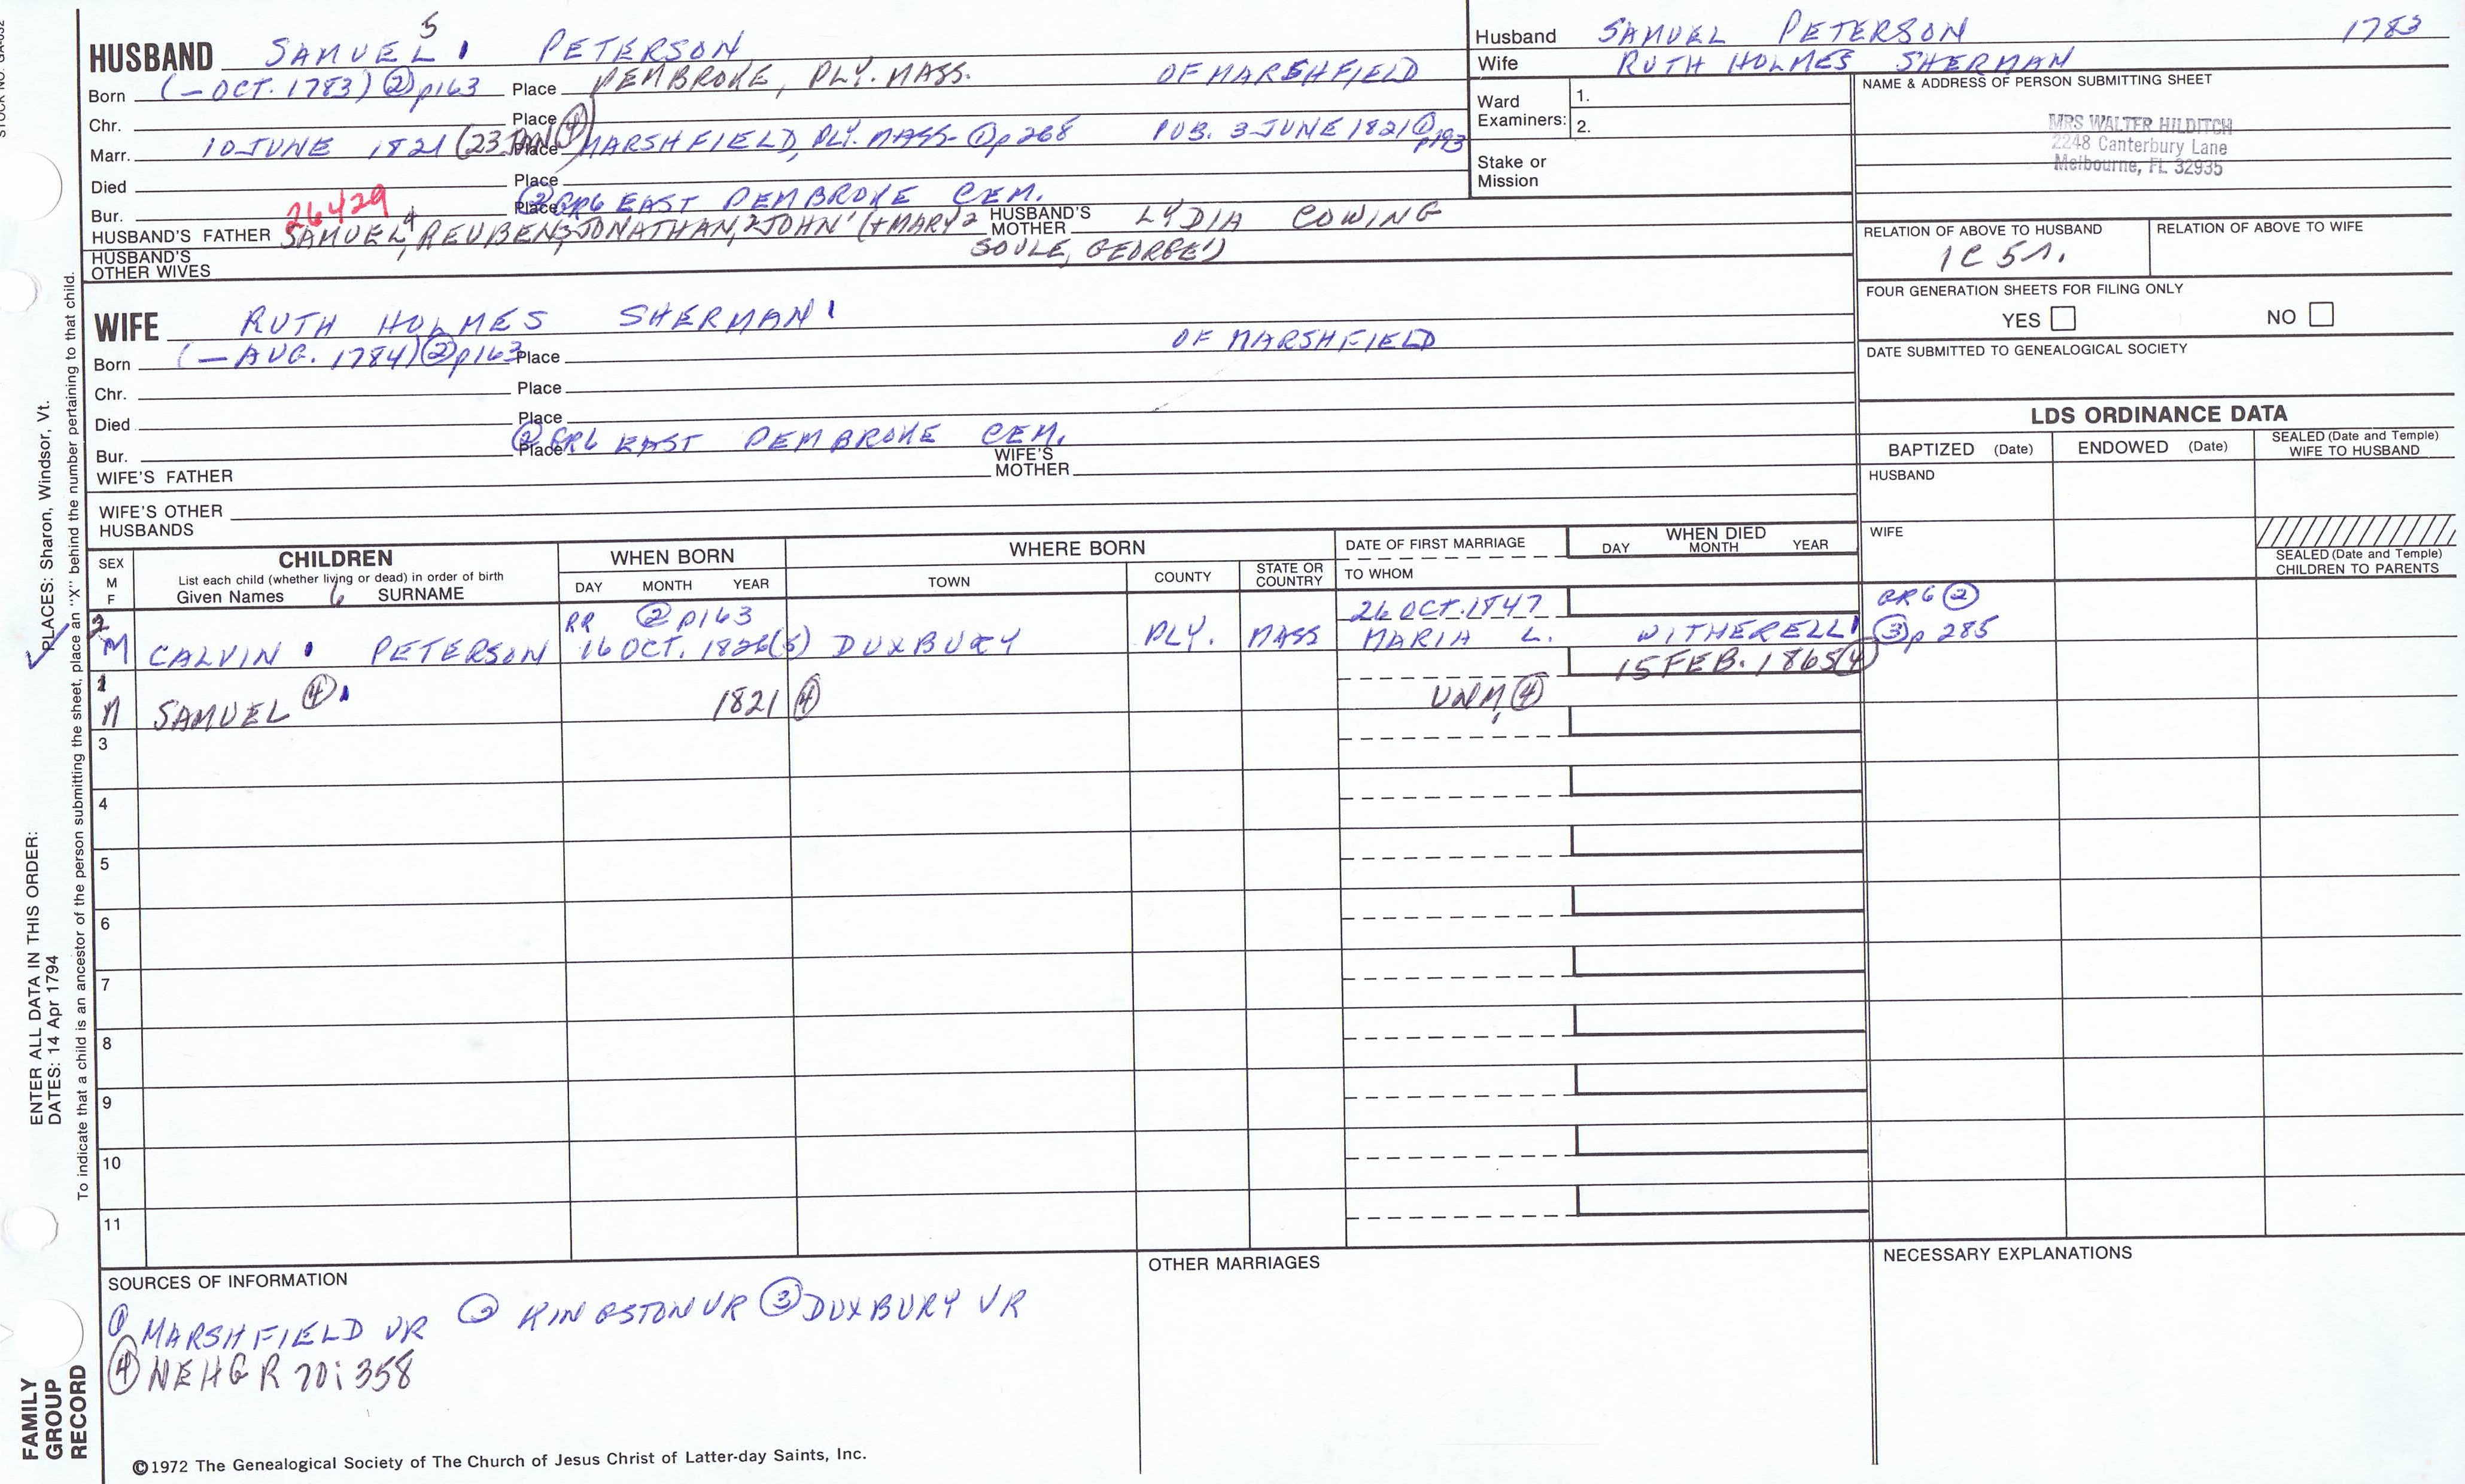 STOCK NO. GA-032
5
HUSBAND SAMUEL PETERSON
Born (– OCT. 1783) ② p163 Place PEMBROKE, PLY. MASS. OF MARSHFIELD
Chr. Place
Marr. 10 JUNE 1821 (23 JAN ④) Place MARSHFIELD, PLY. MASS- ① p268 PUB. 3 JUNE 1821 ① p193
Died Place
Bur. 26429 Place ② GR6 EAST PEMBROKE CEM.
HUSBAND'S FATHER SAMUEL4, REUBEN3, JONATHAN,2 JOHN1 (+MARY2 HUSBAND'S MOTHER LYDIA COWING
SOULE, GEORGE1)
HUSBAND'S OTHER WIVES
WIFE RUTH HOLMES SHERMAN
Born (– AUG. 1784) ② p163 Place OF MARSHFIELD
Chr. Place
Died Place
Bur. Place ② GR6 EAST PEMBROKE CEM.
WIFE'S FATHER WIFE'S MOTHER
WIFE'S OTHER HUSBANDS
Husband SAMUEL PETERSON 1783
Wife RUTH HOLMES SHERMAN
Ward Examiners: 1.
2.
Stake or Mission
NAME & ADDRESS OF PERSON SUBMITTING SHEET
MRS WALTER HILDITCH
2248 Canterbury Lane
Melbourne, FL 32935
RELATION OF ABOVE TO HUSBAND RELATION OF ABOVE TO WIFE
1C 5r.
FOUR GENERATION SHEETS FOR FILING ONLY
YES NO
DATE SUBMITTED TO GENEALOGICAL SOCIETY
LDS ORDINANCE DATA
BAPTIZED (Date) ENDOWED (Date) SEALED (Date and Temple) WIFE TO HUSBAND
HUSBAND
WIFE
SEALED (Date and Temple) CHILDREN TO PARENTS
SEX M F
CHILDREN
List each child (whether living or dead) in order of birth
Given Names 6 SURNAME
WHEN BORN
DAY MONTH YEAR
WHERE BORN
TOWN COUNTY STATE OR COUNTRY
DATE OF FIRST MARRIAGE
TO WHOM
WHEN DIED
DAY MONTH YEAR
2 RR ② p163 26 OCT. 1847 GR6 ②
M CALVIN PETERSON 16 OCT. 1826(5) DUXBURY PLY. MASS MARIA L. WITHERELL ③ p 285
1 15 FEB. 1865 ④
M SAMUEL ④ 1821 ④ UNM, ④
3
4
5
6
7
8
9
10
11
SOURCES OF INFORMATION
① MARSHFIELD VR ② KINGSTON VR ③ DUXBURY VR
④ NEHGR 70:358
OTHER MARRIAGES
NECESSARY EXPLANATIONS
©1972 The Genealogical Society of The Church of Jesus Christ of Latter-day Saints, Inc.
FAMILY GROUP RECORD
ENTER ALL DATA IN THIS ORDER:
DATES: 14 Apr 1794
PLACES: Sharon, Windsor, Vt.
To indicate that a child is an ancestor of the person submitting the sheet, place an "X" behind the number pertaining to that child.